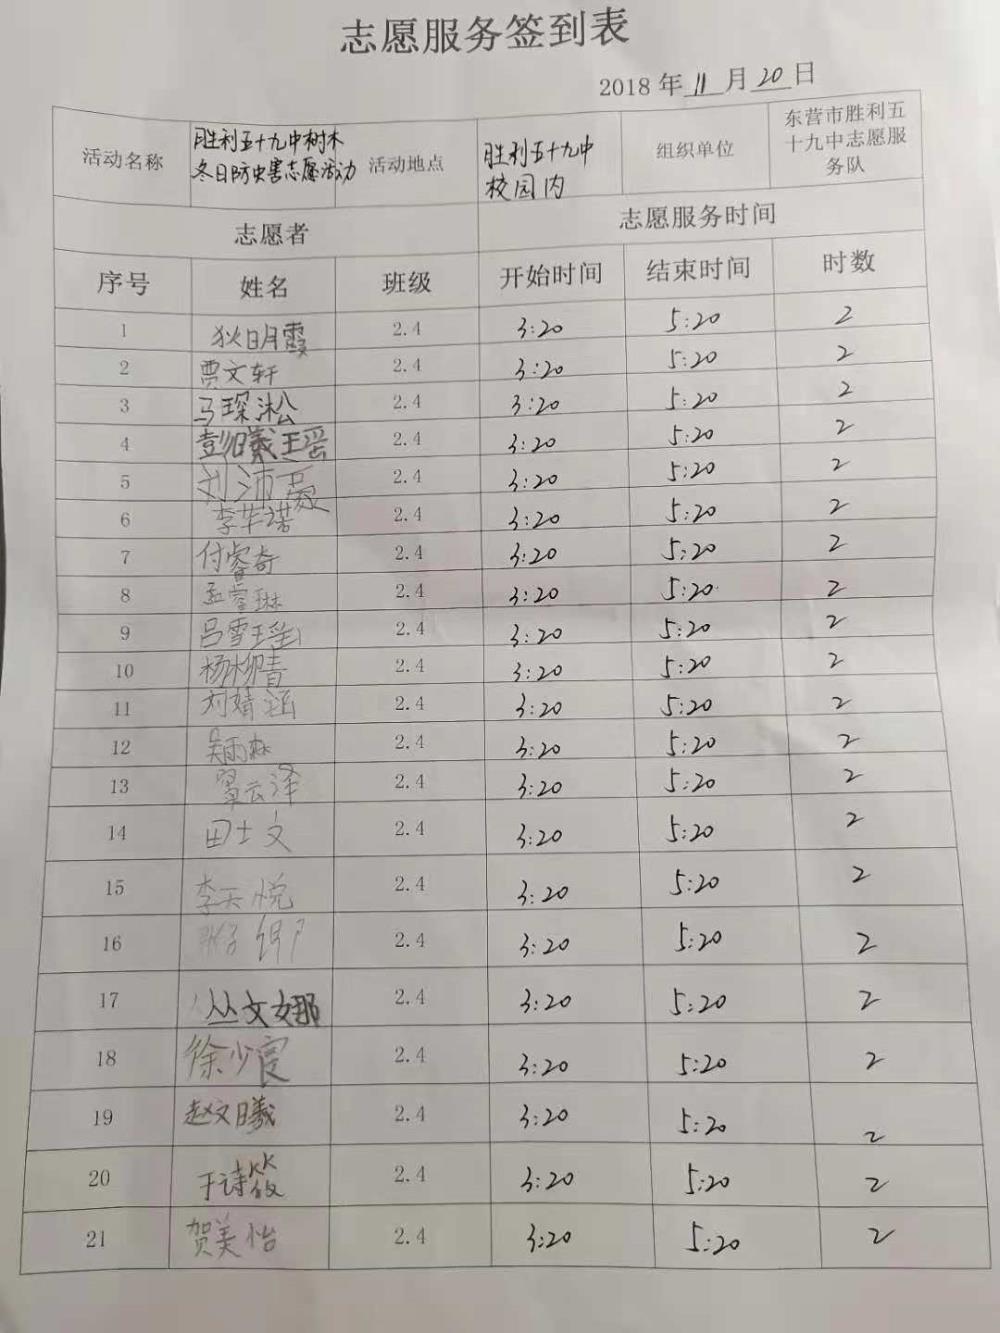 志愿服务签到表
2018 年 11 月 20 日
活动名称 胜利五十九中树木冬日防虫害志愿活动 活动地点 胜利五十九中校园内 组织单位 东营市胜利五十九中志愿服务队
志愿者 志愿服务时间
序号 姓名 班级 开始时间 结束时间 时数
1 狄明霞 2.4 3:20 5:20 2
2 贾文轩 2.4 3:20 5:20 2
3 马琛淞 2.4 3:20 5:20 2
4 彭曦瑶 2.4 3:20 5:20 2
5 刘沛 2.4 3:20 5:20 2
6 李 诺 2.4 3:20 5:20 2
7 付睿奇 2.4 3:20 5:20 2
8 孟 琳 2.4 3:20 5:20 2
9 吕雪瑶 2.4 3:20 5:20 2
10 杨柳青 2.4 3:20 5:20 2
11 刘婧涵 2.4 3:20 5:20 2
12 吴雨 2.4 3:20 5:20 2
13 云泽 2.4 3:20 5:20 2
14 田士文 2.4 3:20 5:20 2
15 李天悦 2.4 3:20 5:20 2
16 2.4 3:20 5:20 2
17 丛文娜 2.4 3:20 5:20 2
18 徐少宸 2.4 3:20 5:20 2
19 赵文曦 2.4 3:20 5:20 2
20 于诗筱 2.4 3:20 5:20 2
21 贺美怡 2.4 3:20 5:20 2